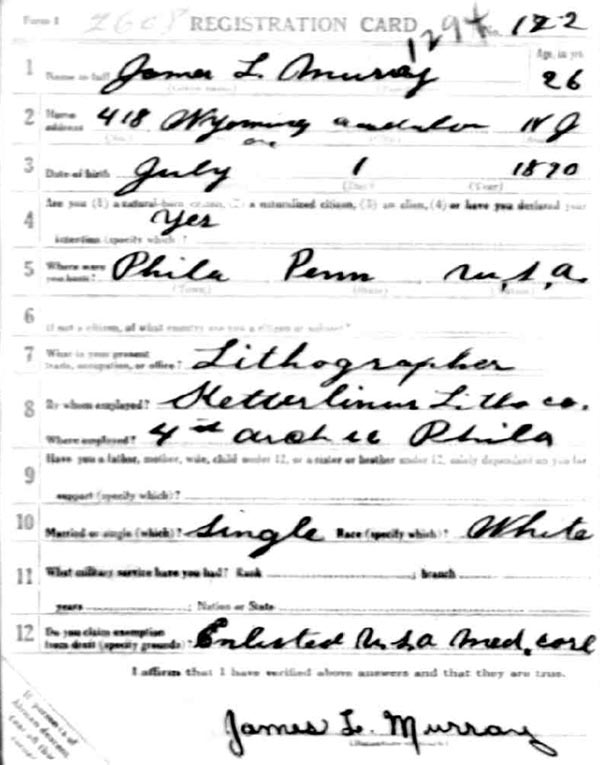 Form 1 2608 REGISTRATION CARD 1294 No. 122
Age, in yrs.
1 Name in full James L. Murray 26
2 Home address 418 Wyoming ave Audubon N J
3 Date of birth July 1 1890
(Day) (Year)
4 Are you (1) a natural-born citizen, (2) a naturalized citizen, (3) an alien, (4) or have you declared your
Yes
intention (specify which)?
5 Where were you born? Phila Penn U.S.A.
(Town) (State) (Nation)
6
If not a citizen, of what country are you a citizen or subject?
7 What is your present trade, occupation, or office? Lithographer
8 By whom employed? Ketterlinus Litho co.
Where employed? 4th Arch Phila
9 Have you a father, mother, wife, child under 12, or a sister or brother under 12, solely dependent on you for
support (specify which)?
10 Married or single (which)? Single Race (specify which)? White
11 What military service have you had? Rank ; branch
years ; Nation or State
12 Do you claim exemption from draft (specify grounds)? Enlisted U.S.A Med. core
I affirm that I have verified above answers and that they are true.
James L. Murray
If person is of
African descent,
tear off this
corner